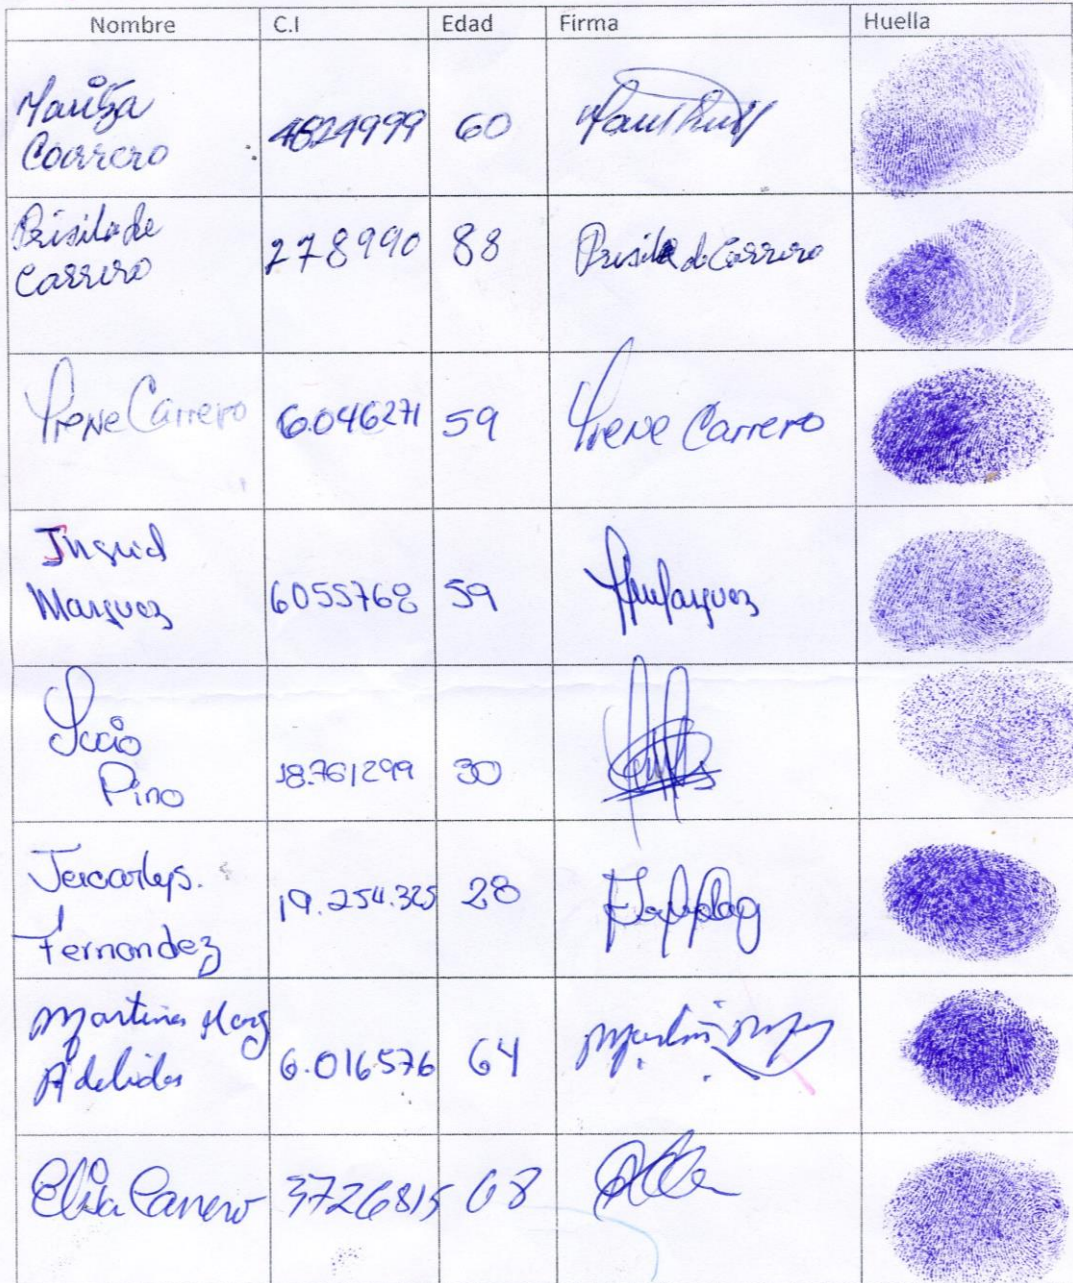 Nombre C.I Edad Firma Huella
Maritza
Carrero 4824999 60
Prisila de
Carrero 278990 88 Prisila de Carrero
Irene Carrero 6.046271 59 Irene Carrero
Ingrid
Marquez 6055768 59
Lucio
Pino 18.761299 30
Jericarlys.
Fernandez 19.254.325 28
Martina
Adelida 6.016.576 64
Elisa Carrero 3726815 68